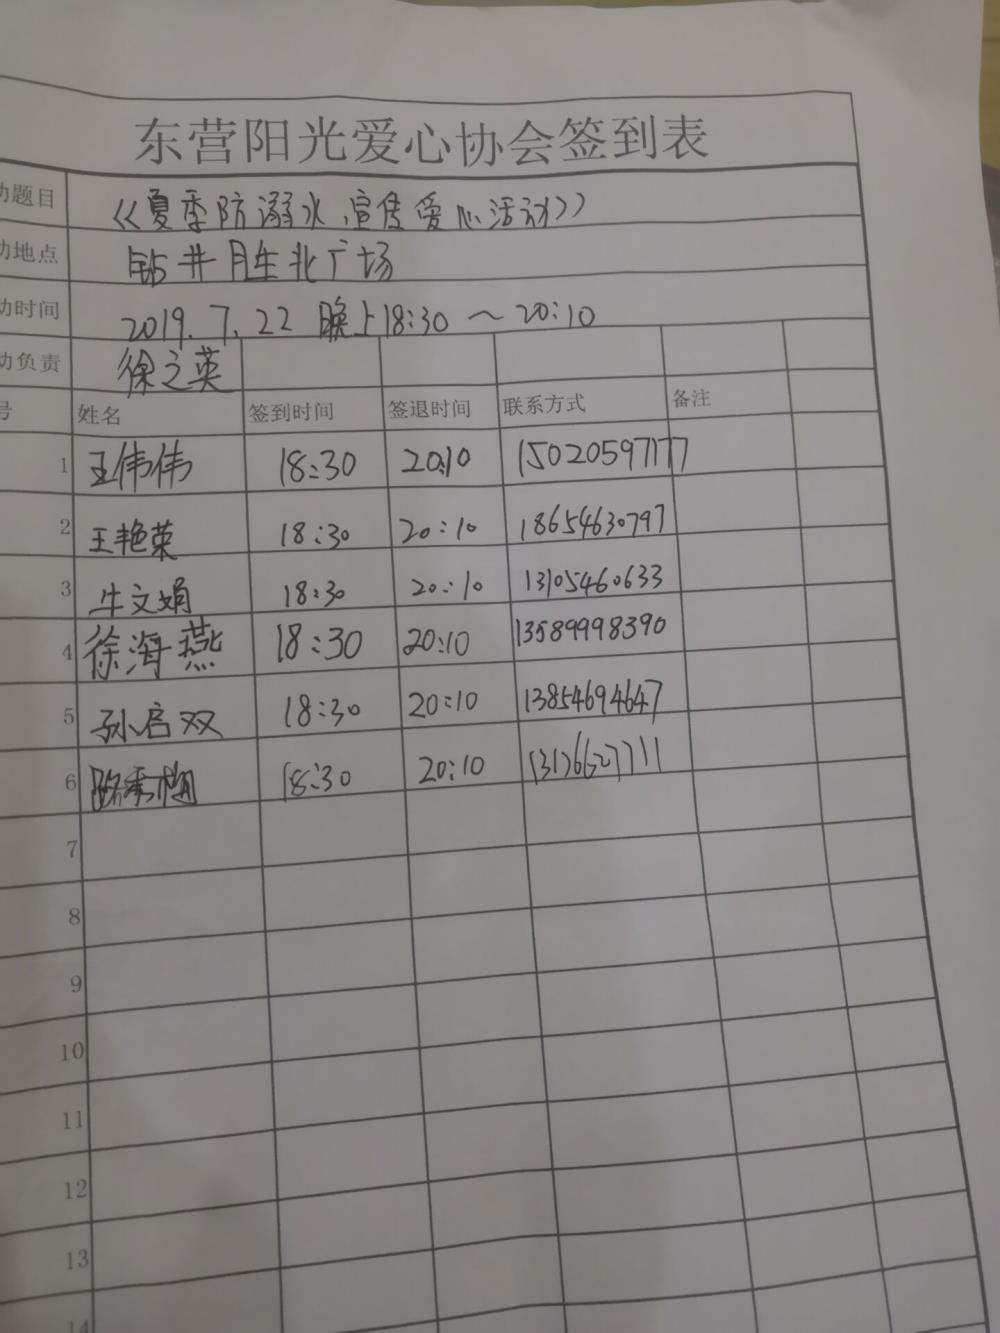 东营阳光爱心协会签到表
动题目 《夏季防溺水宣传爱心活动》
动地点 钻井胜北广场
动时间 2019.7.22 晚上18:30～20:10
动负责 徐之英
号 姓名 签到时间 签退时间 联系方式 备注
1 王伟伟 18:30 20:10 15020597177
2 王艳荣 18:30 20:10 18654630797
3 牛文娟 18:30 20:10 13105460633
4 徐海燕 18:30 20:10 13589998390
5 孙启双 18:30 20:10 13854694647
6 18:30 20:10
7
8
9
10
11
12
13
14